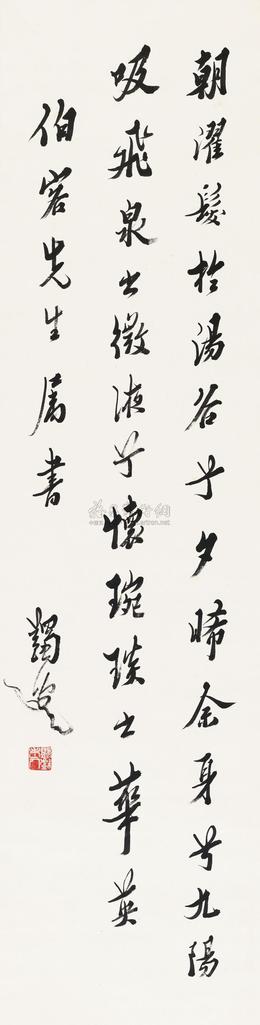 朝濯髮於湯谷兮夕晞余身兮九陽
吸飛泉之微液兮懷琬琰之華英
伯容先生屬書 蠲叟